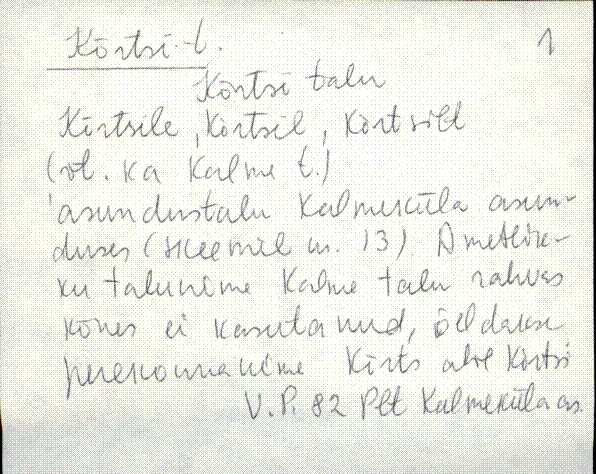 Kõrtsi-t. 1
Kõrtsi talu
Kõrtsile, Kõrtsil, Kõrtsilt
(vt. ka Kalme t.)
'asundustalu Kalmeküla asun-
duses (skeemil nr. 13). Ametlik-
ku talunime Kalme talu rahvas
kõnes ei kasutanud, öeldakse
perekonnanime Kõrts abil Kõrtsi
V.P. 82 Plt Kalmeküla as.